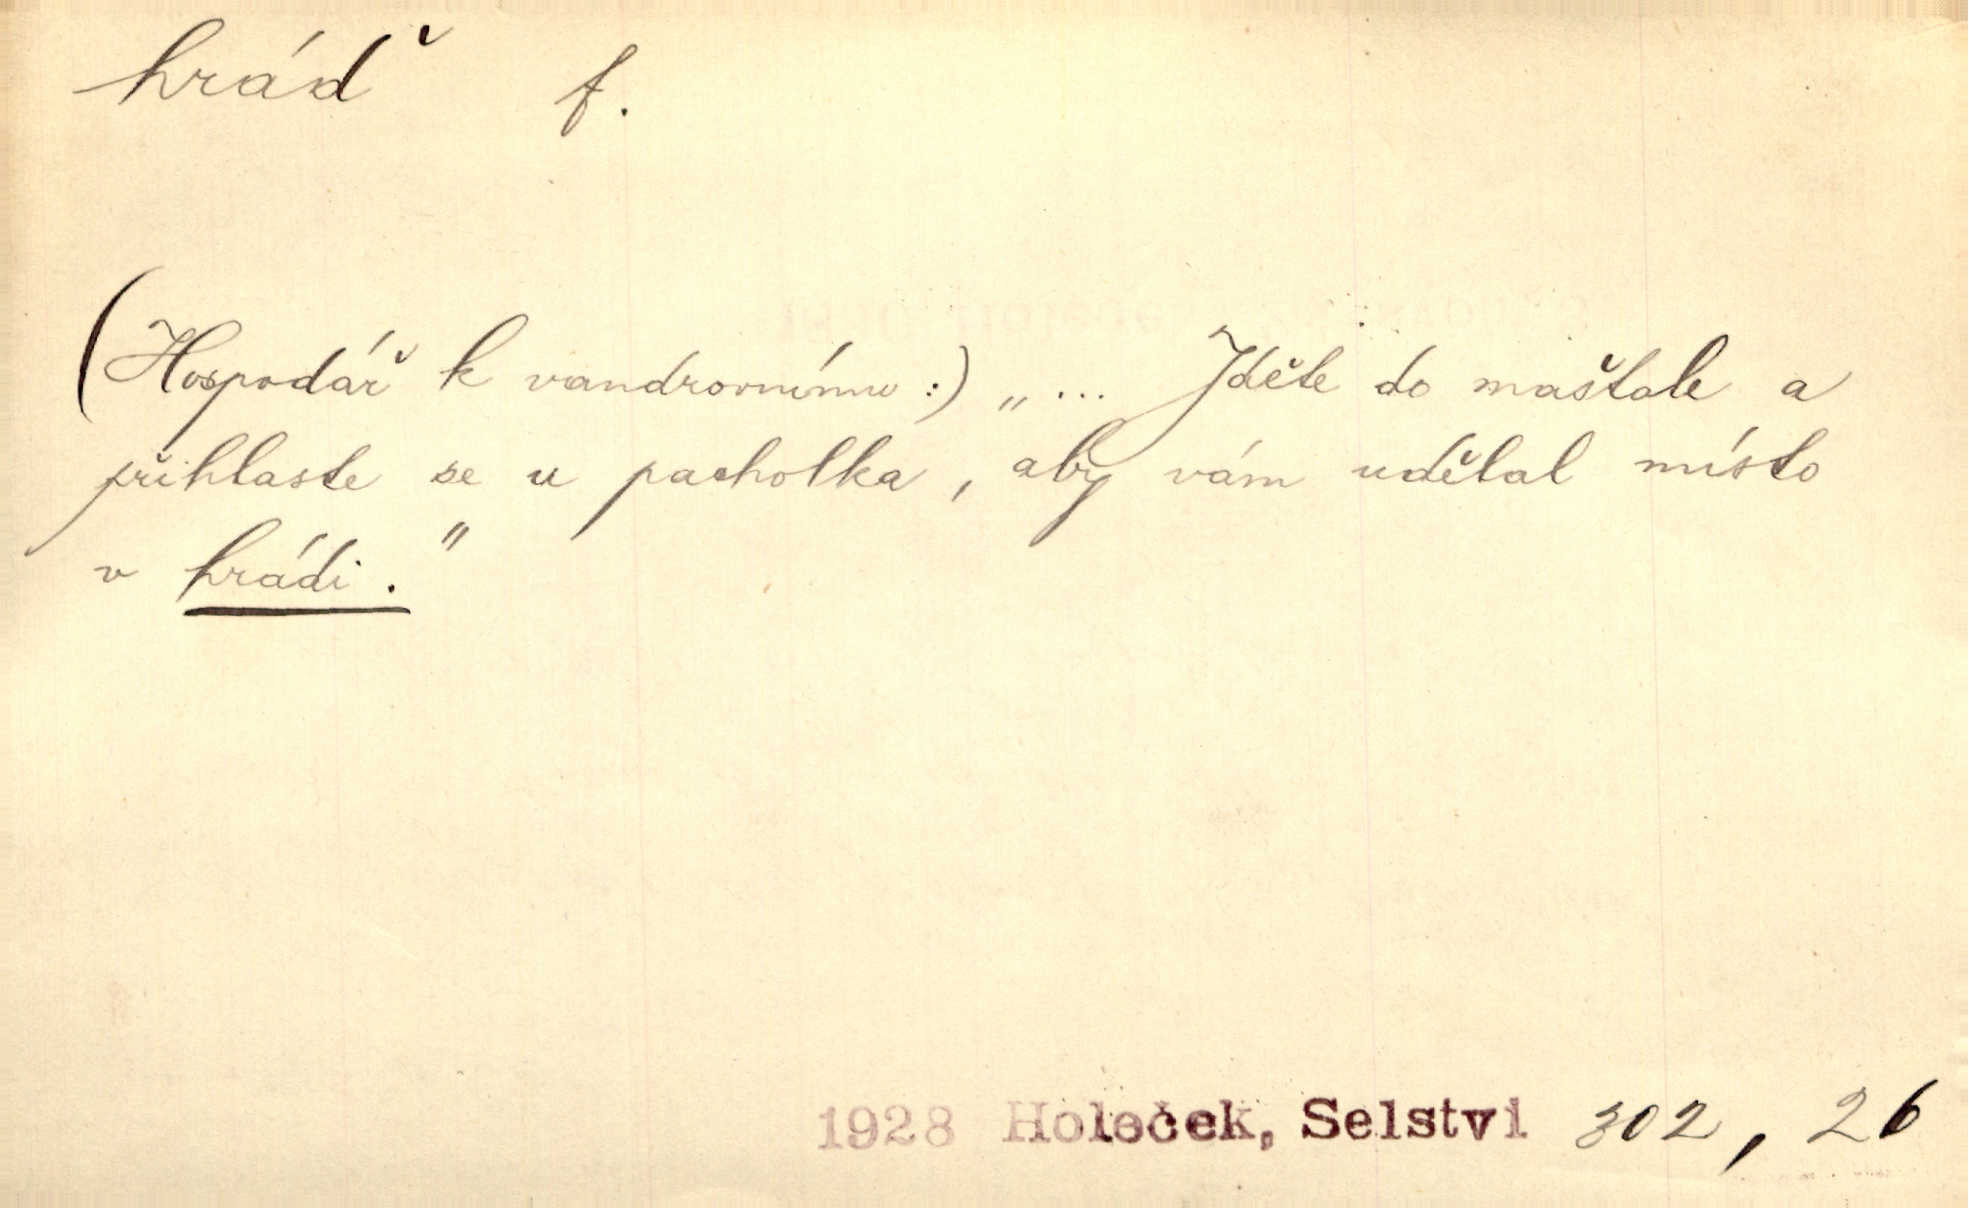 hráď f.
(Hospodář k vandrovnímu:) „... Jděte do maštale a
přihlaste se u pacholka, aby vám udělal místo
v hrádi."
1928 Holeček, Selství 302, 26